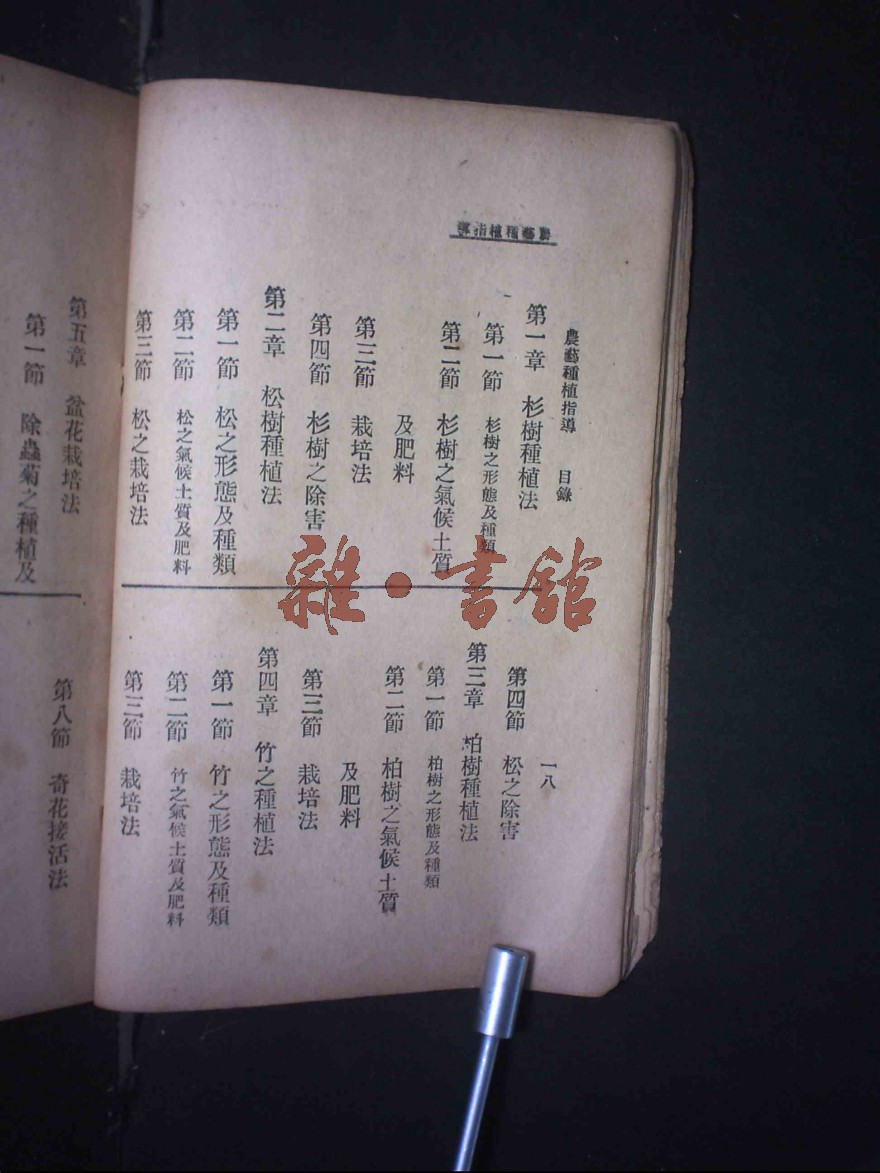 農藝種植指導
農藝種植指導　目錄
第一章　杉樹種植法
第一節　杉樹之形態及種類
第二節　杉樹之氣候土質
及肥料
第三節　栽培法
第四節　杉樹之除害
第二章　松樹種植法
第一節　松之形態及種類
第二節　松之氣候土質及肥料
第三節　松之栽培法
一八
第四節　松之除害
第三章　柏樹種植法
第一節　柏樹之形態及種類
第二節　柏樹之氣候土質
及肥料
第三節　栽培法
第四章　竹之種植法
第一節　竹之形態及種類
第二節　竹之氣候土質及肥料
第三節　栽培法
第五章　盆花栽培法
第一節　除蟲菊之種植及
第八節　奇花接活法
雜·書館